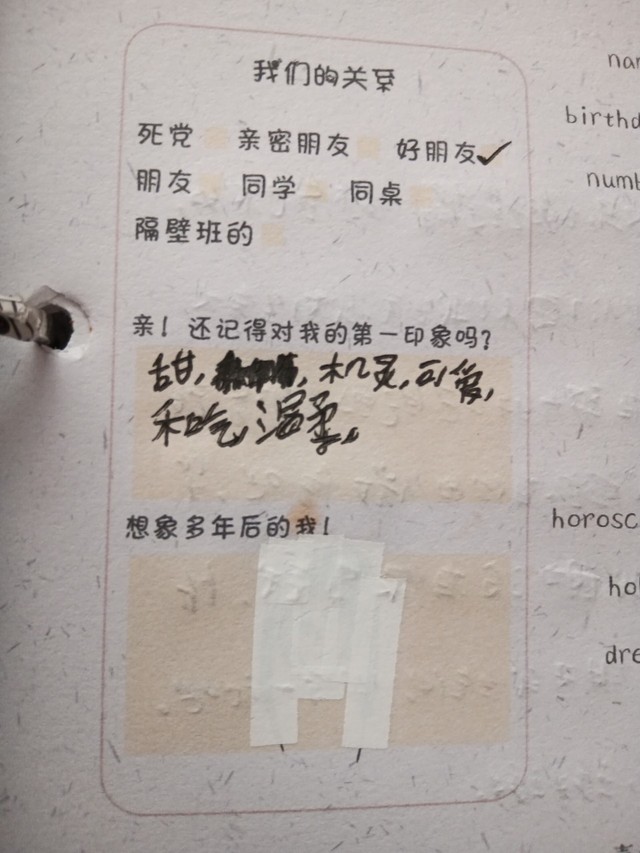 我们的关系
死党 亲密朋友 好朋友✓
朋友 同学 同桌
隔壁班的
亲！还记得对我的第一印象吗？
甜，机灵，可爱，
温柔。
想象多年后的我！
nam
birthd
numb
horosc
ho
dre